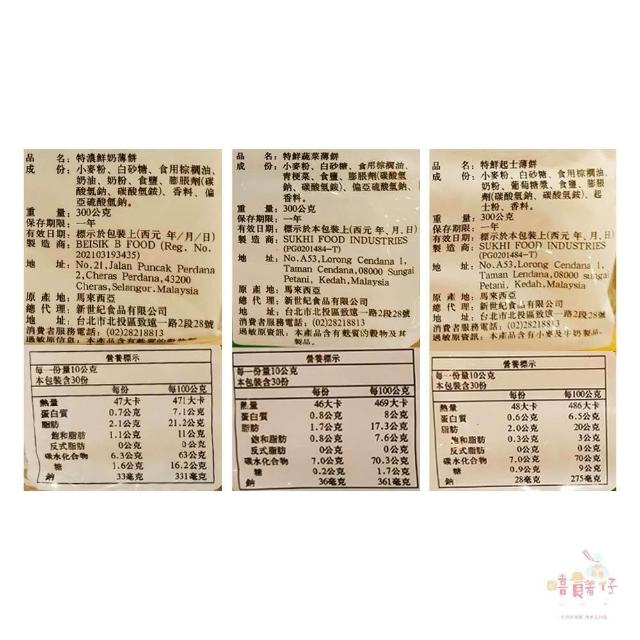 品　　名：特濃鮮奶薄餅
成　　份：小麥粉、白砂糖、食用棕櫚油、
奶油、奶粉、食鹽、膨脹劑(碳
酸氫鈉、碳酸氫銨)、香料、偏
亞硫酸氫鈉。
重　　量：300公克
保存期限：一年
有效日期：標示於本包裝上(西元 年/月/日)
製 造 商：BEISIK B FOOD (Reg. No.
202103193435)
地　　址：No.21,Jalan Puncak Perdana
2,Cheras Perdana,43200
Cheras,Selangor.Malaysia
原 產 地：馬來西亞
總 代 理：新世紀食品有限公司
地　　址：台北市北投區致遠一路2段28號
消費者服務電話：(02)28218813
營養標示
每一份量10公克
本包裝含30份
每份　每100公克
熱量　47大卡　471大卡
蛋白質　0.7公克　7.1公克
脂肪　2.1公克　21.2公克
飽和脂肪　1.1公克　11公克
反式脂肪　0公克　0公克
碳水化合物　6.3公克　63公克
糖　1.6公克　16.2公克
鈉　33毫克　331毫克
品　　名：特鮮蔬菜薄餅
成　　份：小麥粉、白砂糖、食用棕櫚油、
青梗菜、食鹽、膨脹劑(碳酸氫
鈉、碳酸氫銨)、偏亞硫酸氫鈉、
香料。
重　　量：300公克
保存期限：一年
有效日期：標示於本包裝上(西元年、月、日)
製 造 商：SUKHI FOOD INDUSTRIES
(PG0201484-T)
地　　址：No.A53,Lorong Cendana 1,
Taman Cendana,08000 Sungai
Petani, Kedah,Malaysia
原 產 地：馬來西亞
總 代 理：新世紀食品有限公司
地　　址：台北市北投區致遠一路2段28號
消費者服務電話：(02)28218813
過敏原資訊：本產品含有麩質的穀物及其
製品。
營養標示
每一份量10公克
本包裝含30份
每份　每100公克
熱量　46大卡　469大卡
蛋白質　0.8公克　8公克
脂肪　1.7公克　17.3公克
飽和脂肪　0.8公克　7.6公克
反式脂肪　0公克　0公克
碳水化合物　7.0公克　70.3公克
糖　0.2公克　1.7公克
鈉　36毫克　361毫克
品　　名：特鮮起士薄餅
成　　份：小麥粉、白砂糖、食用棕櫚油、
奶粉、葡萄糖漿、食鹽、膨脹
劑(碳酸氫鈉、碳酸氫銨)、起
士粉、香料。
重　　量：300公克
保存期限：一年
有效日期：標示於本包裝上(西元年、月、日)
製 造 商：SUKHI FOOD INDUSTRIES
(PG0201484-T)
地　　址：No.A53,Lorong Cendana 1,
Taman Lendana,08000 sungai
Petani, Kedah,Malaysia
原 產 地：馬來西亞
總 代 理：新世紀食品有限公司
地　　址：台北市北投區致遠一路2段28號
消費者服務電話：(02)28218813
過敏原資訊：本產品含有小麥及牛奶製品。
營養標示
每一份量10公克
本包裝含30份
每份　每100公克
熱量　48大卡　486大卡
蛋白質　0.6公克　6.5公克
脂肪　2.0公克　20公克
飽和脂肪　0.3公克　3公克
反式脂肪　0公克　0公克
碳水化合物　7.0公克　70公克
糖　0.9公克　9公克
鈉　28毫克　275毫克